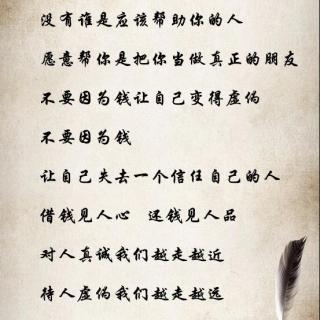 没有谁是应该帮助你的人
愿意帮你是把你当做真正的朋友
不要因为钱让自己变得虚伪
不要因为钱
让自己失去一个信任自己的人
借钱见人心 还钱见人品
对人真诚我们越走越近
待人虚伪我们越走越远